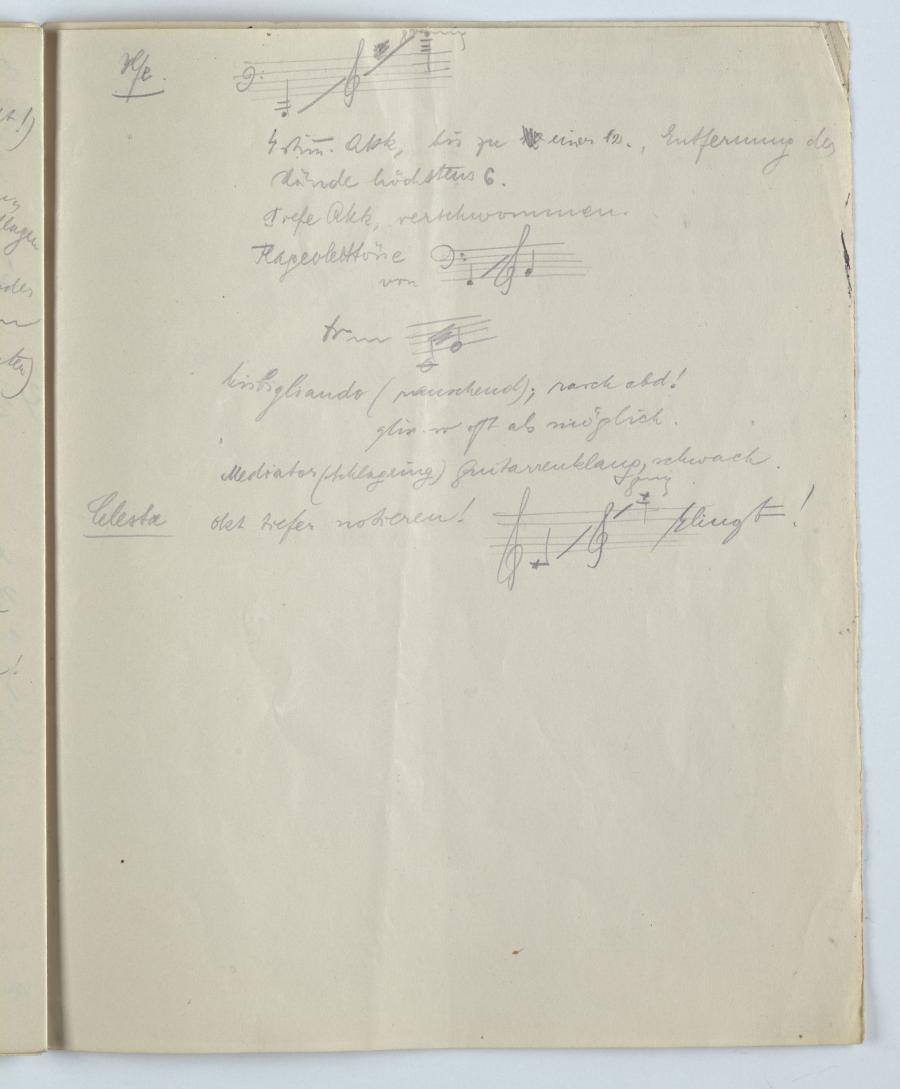 Hfe.
4 stim. Akk, bis zu einer 12., Entfernung der
Hände höchstens 6.
Tiefe Akk, verschwommen.
Flageolettöne
von
tr
bisbigliando (rauschend); rasch abd!
glis. so oft als möglich.
Mediator (Schlagring) Guitarrenklang, schwach.
Celesta okt tiefer notieren! klingt!